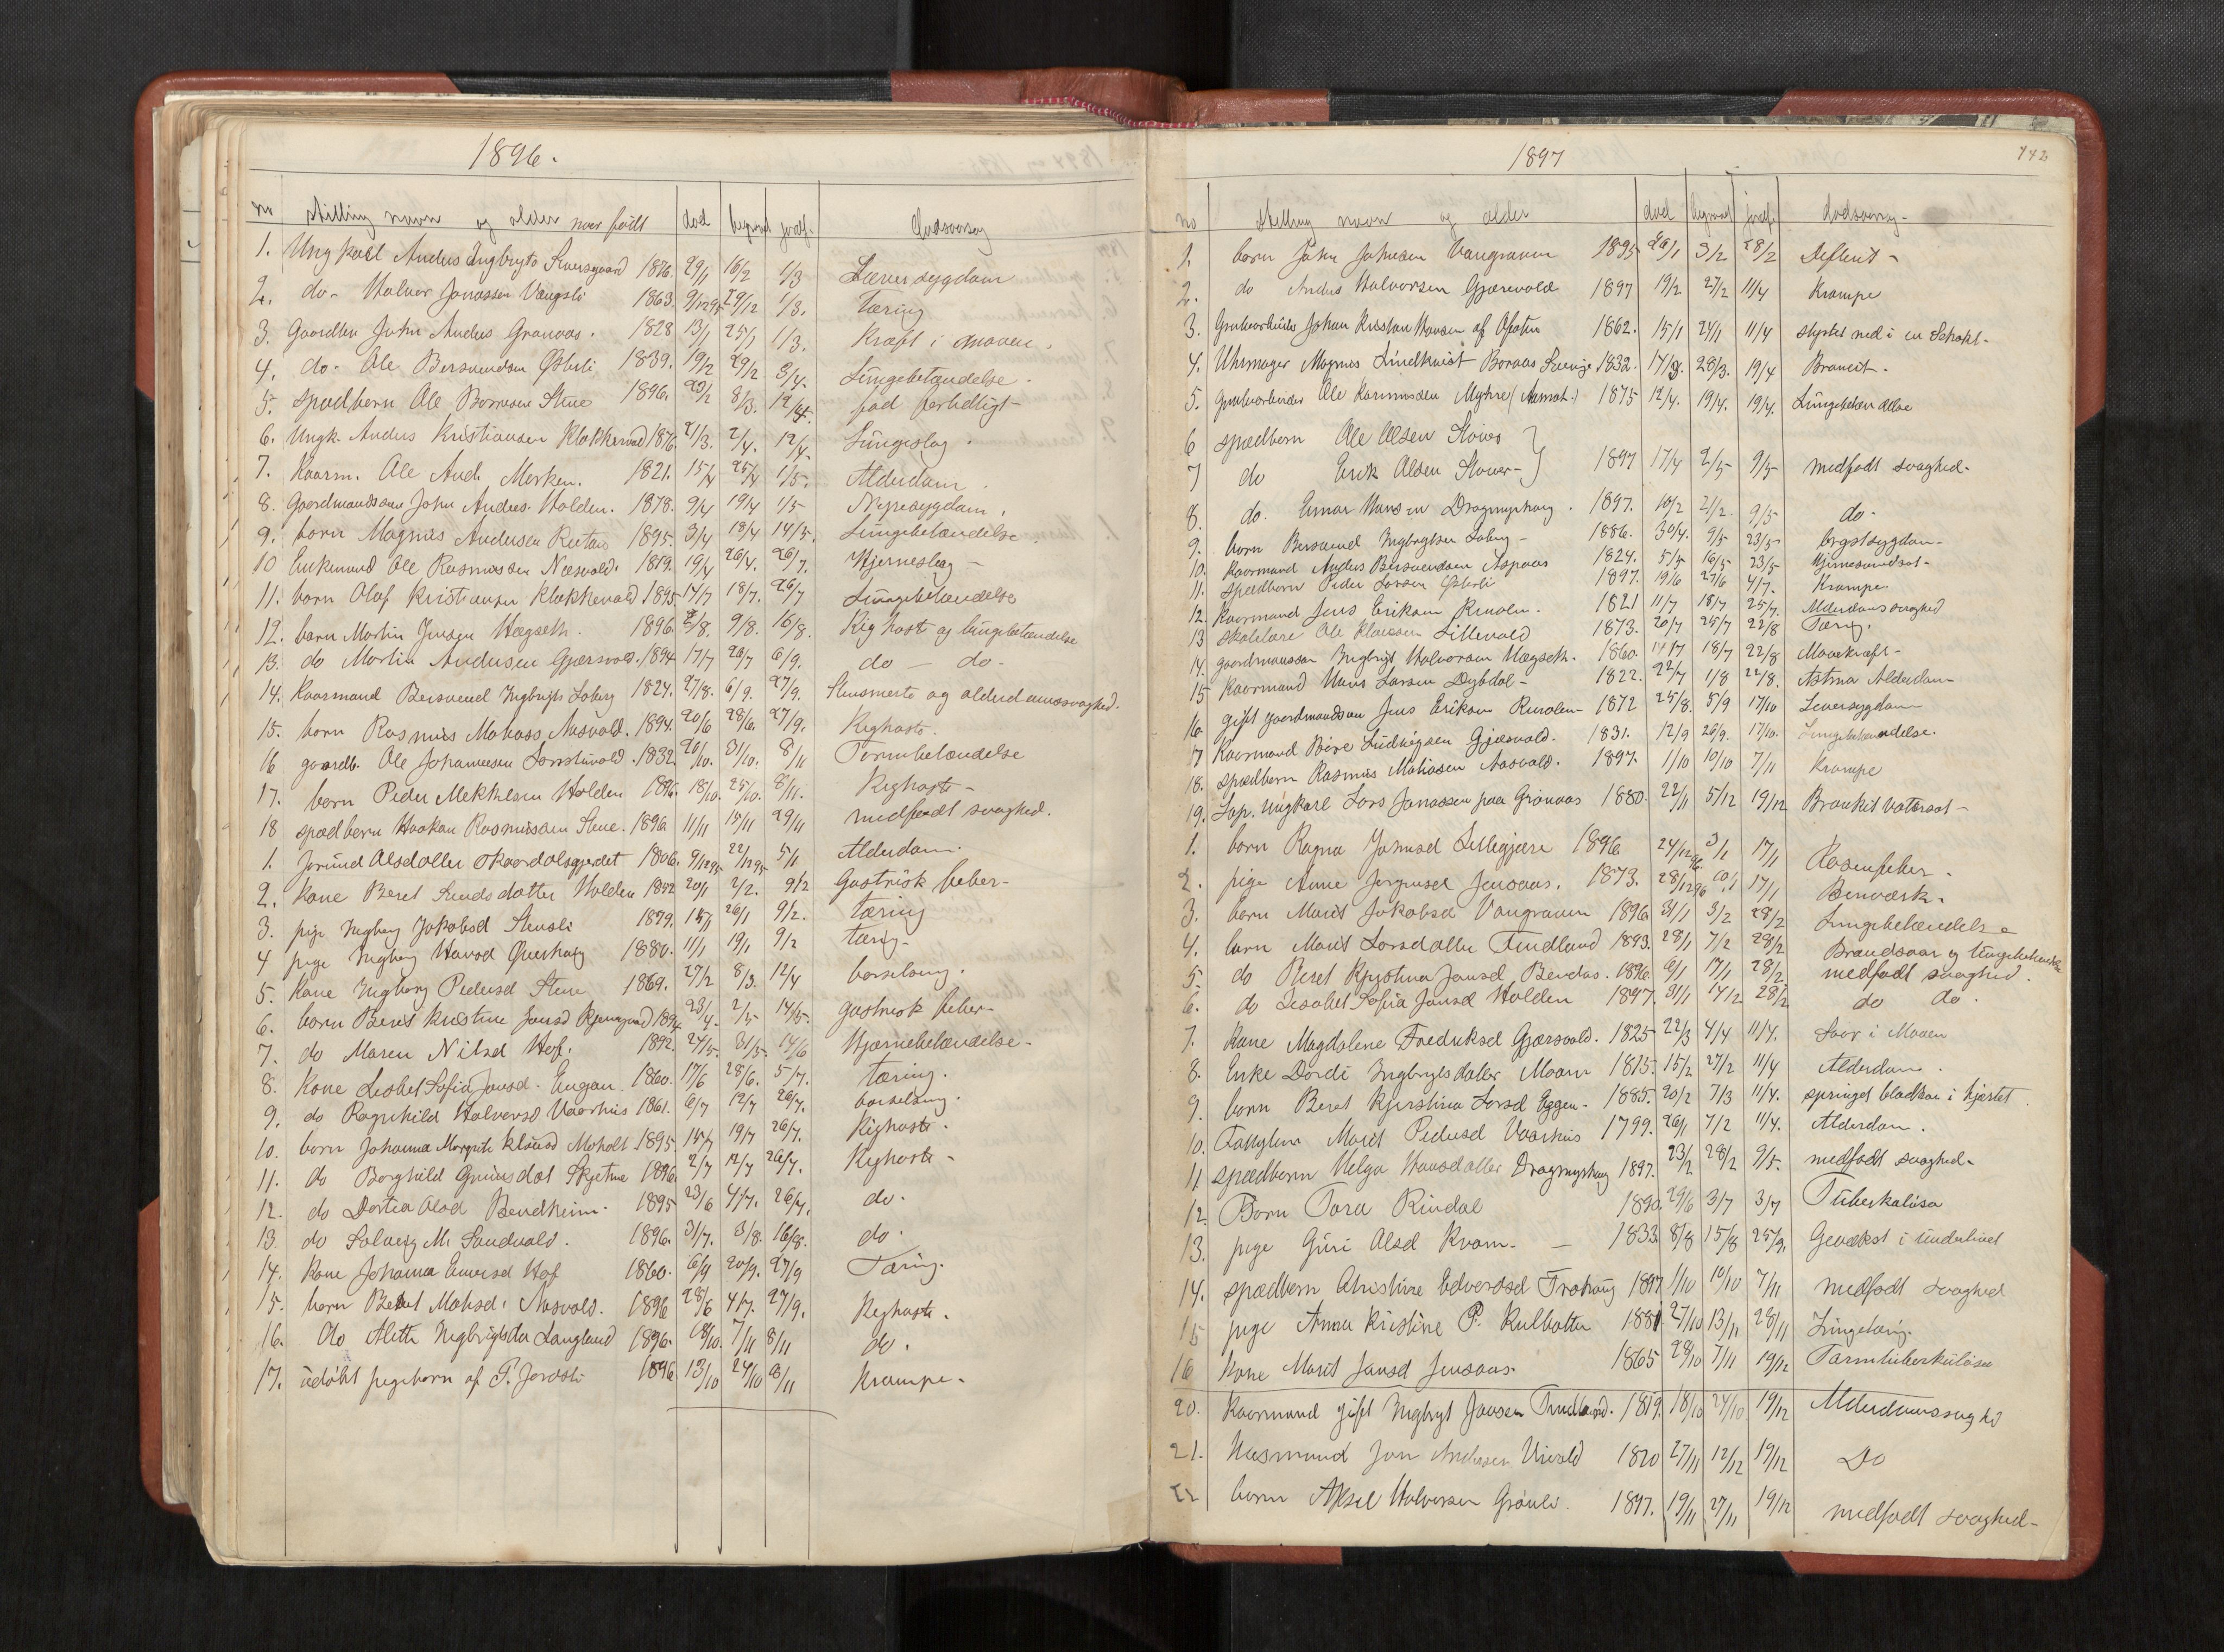 1896.
no stilling navn og alder naar födt död begravet jordf. Dödsaarsag
1. Ungkarl Anders Ingbrigts 1876. 29/1 16/2 1/3 Leversygdom
2. do- Halvor Jonassen Vangsli 1863. 9/12 95 29/12 1/3. Tæring
3. Gaardbr. John Anders Granaas. 1828 13/1 25/1 1/3. Kræft i Maven.
4. do- Ole Bersvendsen Østerli 1839. 19/2 29/2 3/4. Lungebetændelse.
5. spædbern Ole Stene 1896. 29/2 8/3. 12/4. fød fertidligt-
6. Ungk. Anders Kristiansen Klokkervold 1876. 21/3. 2/4. 12/4. Lungeslag.
7. Kaarm. Ole And. Merken. 1821. 15/4 25/4 1/5. Alderdom.
8. Gaardmandssøn John Anders. Holden. 1878. 9/4 19/4 1/5 Nyresygdom.
9. barn Magnus Andersen 1895 3/4 18/4 14/5. Lungebetændelse
10 Enkemand Ole Rasmussen Næsvold. 1819. 19/4 26/4. 26/7. Hjerneslag-
11. barn Olaf Kristiansen Klokkervold 1895. 14/7 18/7. 26/7 Lungebetændelse
12. barn Martin Jensen Hægseth. 1896. 2/8. 9/8. 16/8. Kighoste og lungebetændelse
13. do Martin Andersen Gjærsvold. 1894 17/7 26/7 6/9. do - do-
14. Kaarmand Bersvend Ingbrigts Loberg 1824. 27/8. 6/9. 27/9. Stensmerte og alderdomssvaghed.
15. barn Rasmus Mahass. Aasvold. 1894. 20/6 28/6. 27/9. Kighoste.
16 gaardb. Ole Johannesen 1832. 20/10. 31/10. 8/11 Tarmbetændelse
17. barn Peder Mekkelsen Holden 1896. 18/10. 25/10. 8/11. Kighoste-
18 spædbern Haakon Rasmussen Stene. 1896 11/11 15/11 29/11 medfødt svaghed.
1. Jorund Olsdatter 1806. 9/12 95 22/12 95 5/1 Alderdom.
2. Kone Beret Holden 1852 20/1 2/2. 9/2 Gastrisk feber-
3. pige Ingborg Jakobsd Stensli 1879. 15/1 26/1 9/2. tæring
4 pige Ingborg Hansd 1880. 11/1 19/1 9/2 tæring-
5. Kone Ingborg Pedersd Stene 1869. 27/2 8/3. 12/4 barselseng.
6. barn Beret Kristine Jonsd 1894. 23/4. 2/5 14/5. gastrisk feber-
7. do Maren Nilsd Hof. 1892. 24/5. 31/5. 14/6 Hjærnebetændelse-
8. Kone Lisbet Sofia Jonsd. Engan 1860. 17/6 28/6. 5/7. Tæring.
9. do Ragnhild Halvorsd Vaarhus 1861. 6/7 12/7 26/7. barselseng.
10. barn Johanna Margrete Klausd Moholt 1895. 15/7 19/7 26/7. Kighoste.
11. do Borghild Skjetne 1896. 2/7 12/7 26/7. Kighoste-
12. do Dortea Olsd Bendheim. 1895 23/6 4/7. 26/7. do.
13 do Solveig M. Sandvold. 1896. 31/7. 3/8. 16/8. do.
14. Kone Johanna Hof 1860. 6/9 20/9. 27/9 Tæring.
15. barn Beret Mahsd. Aasvold. 1896 28/6 4/7. 27/9. Kighoste.
16. do Aletta Ingbrigtsda Langland 1896. 18/10. 7/11 8/11 do.
17. udøbt pigebarn af P. Jordsli 1896 13/10 24/10 8/11 Krampe.
1897 142
no Stilling navn og alder död begravet jordf. dødsaarsag-
1. barn John Johnsen Vangraven 1895 26/1 3/2 28/2
2. do Anders Halvorsen Gjærsvold 1897 19/2 27/2 11/4 Krampe
3. Grubearbeider Johan Kristian Hansen af 1862. 15/1 24/1 11/4 styrtet ned i en Schakt-
4. Uhrmager Magnus Lindkvist Boraas Sverige 1832. 17/3. 28/3. 19/4
5. Grubearbeider Ole Rasmussen Myhre (Aamot.) 1875 12/4. 19/4. 19/4. Lungebetændelse
6 spædbern Ole Olsen
7 do Erik Olsen 1897 17/4 2/5 9/5 medfødt svaghed-
8. do. Einar Hansen Dragmyrhaug. 1897. 10/2 21/2. 9/5 do-
9. barn Bersvend Ingbrigtsen Loberg- 1886. 30/4. 9/5 23/5 brystsygdom-
10. Kaarmand Anders Bersvendsen Aspaas 1824. 5/5 16/5 23/5
11. spædbern Peder Larsen Østerli 1897. 19/6 27/6 4/7. Krampe
12. Kaarmand Jens Eriksen 1821 11/7 18/7 25/7. Alderdomssvaghed
13 skolelære Ole Klaussen Lillevold 1873. 20/7 25/7 22/8 Tæring.
14. gaardmanssøn Ingbrigt Halvorsen Hægseth. 1860. 14/7 18/7 22/8 Mavekræft-
15 Kaarmand Hans Larsen Dybdal- 1822. 22/7 1/8 22/8. Astma Alderdom
16. gift gaardmandssøn Jens Eriksen 1872 25/8. 5/9 17/10 Leversygdom
17 Kaarmand Ludvigsen Gjæsvold. 1831. 12/9 26/9. 17/10. Lungebetændelse.
18. spædbern Rasmus Mahasen Aasvold. 1897. 1/10 10/10 7/11 Krampe
19. Lap. Ungkarl Lars Jonassen paa Grönaas 1880. 22/11 5/12 19/12 Bronkit vatersot-
1. barn Ragna Johnsd Lillegjære 1896 24/12 96. 3/1 17/1 Rosenfeber.
2. pige Anne Jørgensd Jensaas. 1873. 28/12 96 10/1 17/1 Benværk.
3. barn Marit Jakobsd Vangraven 1896. 31/1 3/2 28/2 Lungebetændelse
4. barn Marit Larsdatter Tindland 1893. 28/1 7/2 28/2 Brandsaar og lungebetændelse
5. do Beret Kjistina Jonsd Bendos. 1896. 6/1 17/1 28/2 medfødt svaghed.
6. do Lisabet Sofia Jonsd Holden 1897. 31/1 14/2 28/2 do do.
7. Kone Magdalene Fredriksd Gjærsvold. 1825 22/3 4/4 11/4. Saar i Maven
8. Enke Dordi Ingbrigtsdatter Moan 1815. 15/2 27/2 11/4 Alderdom.
9. barn Beret Kjerstina Larsd Eggen- 1885. 20/2 7/3 11/4. springet bladkar i hjertet
10. Fattiglem Marit Pedersd Vaarhus 1799. 26/1 7/2 11/4. Alderdom.
11 spædbern Helga Hansdatter Dragmyrhaug 1897. 23/2 28/2 9/5. medfødt svaghed-
12. Barn Tora Rindal 1890. 29/6 3/7 3/7 Tuberkulosa
13. pige Guri Olsd Kvam- - 1833. 8/8 15/8 25/9. Gevækst i underlivet
14. spædbern Christine Edvardsd Trohaug 1897 1/10 10/10 7/11 medfødt svaghed
15 pige Anna Kristine P. Rulbotten 1881. 27/10 13/11 28/11 Lungetæring.
16 Kone Marit Jonsd Jensaas. 1865 28/10 7/11 19/12 Tarmtuberkulosa
20. Kaarmand gift Ingbrigt Jonsen Tindland. 1819. 18/10 24/10 19/12 Alderdomssvaghd
21. Husmand Jon Andersen 1820 27/11 12/12 19/12 Do
22 barn Aksel Halvorsen Grönli. 1897. 19/11 27/11 19/12 medfødt svaghed-